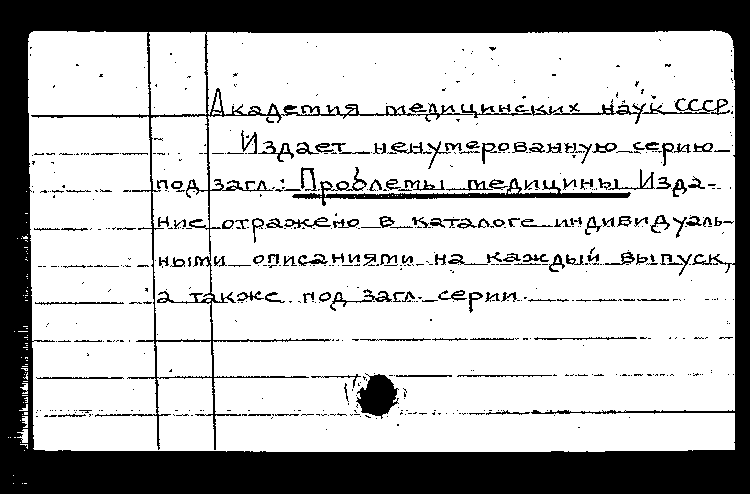 Академия медицинских наук СССР
Издает ненумерованную серию
под загл.: Проблемы медицины Изда-
ние отражено в каталоге индивидуаль-
ными описаниями на каждый выпуск,
а также под загл. серии.